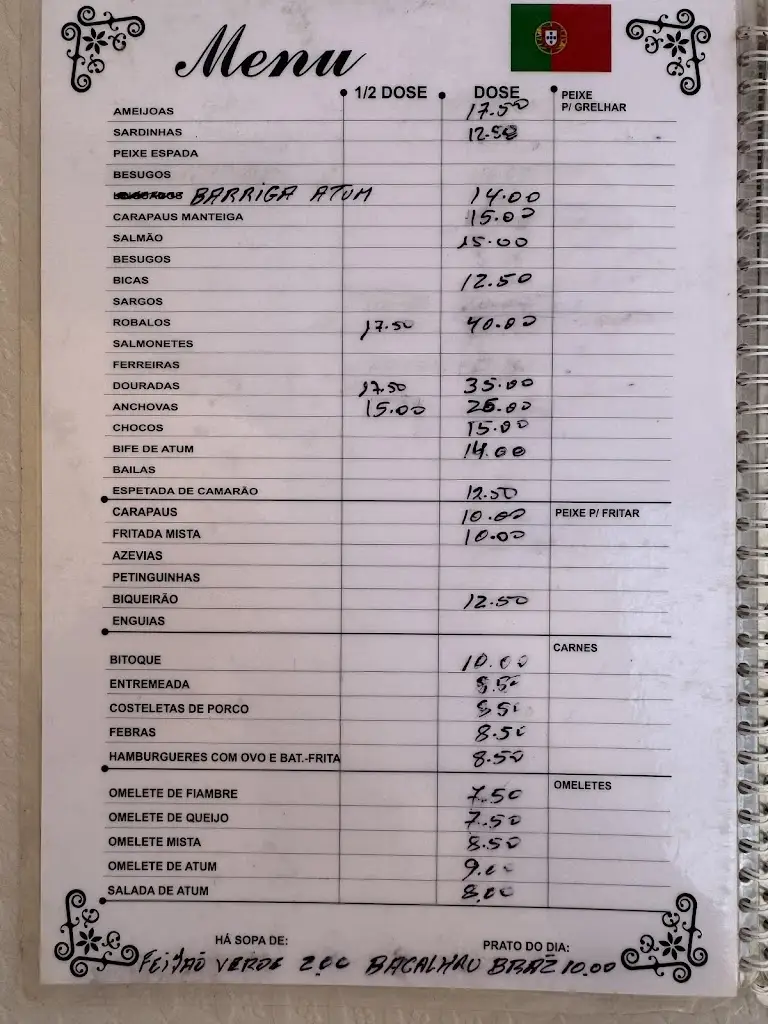 Menu
1/2 DOSE DOSE PEIXE P/ GRELHAR
AMEIJOAS 17.50
SARDINHAS 12.50
PEIXE ESPADA
BESUGOS
BARRIGA ATUM 14.00
CARAPAUS MANTEIGA 15.00
SALMÃO 15.00
BESUGOS
BICAS 12.50
SARGOS
ROBALOS 17.50 40.00
SALMONETES
FERREIRAS
DOURADAS 17.50 35.00
ANCHOVAS 15.00 26.00
CHOCOS 15.00
BIFE DE ATUM 14.00
BAILAS
ESPETADA DE CAMARÃO 12.50
CARAPAUS 10.00 PEIXE P/ FRITAR
FRITADA MISTA 10.00
AZEVIAS
PETINGUINHAS
BIQUEIRÃO 12.50
ENGUIAS
CARNES
BITOQUE 10.00
ENTREMEADA 8.50
COSTELETAS DE PORCO 8.50
FEBRAS 8.50
HAMBURGUERES COM OVO E BAT.-FRITA 8.50
OMELETES
OMELETE DE FIAMBRE 7.50
OMELETE DE QUEIJO 7.50
OMELETE MISTA 8.50
OMELETE DE ATUM 9.00
SALADA DE ATUM 8.00
HÁ SOPA DE: PRATO DO DIA:
FEIJÃO VERDE 2.00 BACALHAU BRAZ 10.00